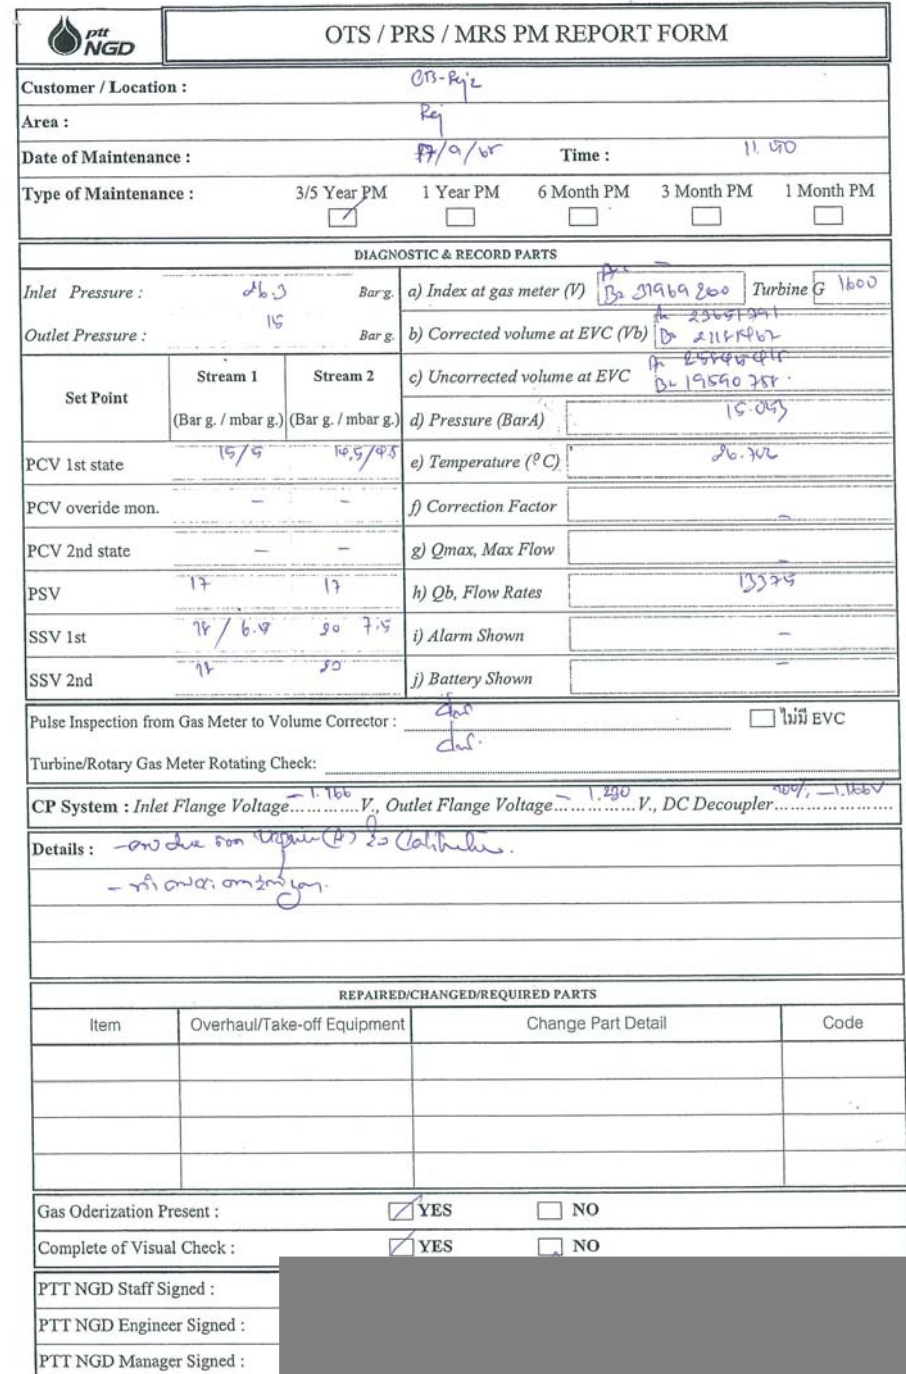 ptt
NGD
OTS / PRS / MRS PM REPORT FORM
Customer / Location : OTS-Roj2
Area : Roj
Date of Maintenance : 17/9/65 Time : 11.50
Type of Maintenance : 3/5 Year PM 1 Year PM 6 Month PM 3 Month PM 1 Month PM
DIAGNOSTIC & RECORD PARTS
Inlet Pressure : 26.3 Barg.
Outlet Pressure : 15 Bar g.
Set Point Stream 1 Stream 2
(Bar g. / mbar g.) (Bar g. / mbar g.)
PCV 1st state 15/5 14.5/4.8
PCV overide mon. - -
PCV 2nd state - -
PSV 17 17
SSV 1st 18 / 6.5 20 7.5
SSV 2nd 18 20
a) Index at gas meter (V) Turbine G 1600
b) Corrected volume at EVC (Vb)
c) Uncorrected volume at EVC
d) Pressure (BarA) 15.053
e) Temperature (ºC)
f) Correction Factor -
g) Qmax, Max Flow -
h) Qb, Flow Rates 13375
i) Alarm Shown -
j) Battery Shown -
Pulse Inspection from Gas Meter to Volume Corrector : ปกติ ไม่มี EVC
Turbine/Rotary Gas Meter Rotating Check: ปกติ
CP System : Inlet Flange Voltage - 1.166 V., Outlet Flange Voltage - 1.230 V., DC Decoupler 100%, -1.166V
Details :
REPAIRED/CHANGED/REQUIRED PARTS
Item Overhaul/Take-off Equipment Change Part Detail Code
Gas Oderization Present : YES NO
Complete of Visual Check : YES NO
PTT NGD Staff Signed :
PTT NGD Engineer Signed :
PTT NGD Manager Signed :